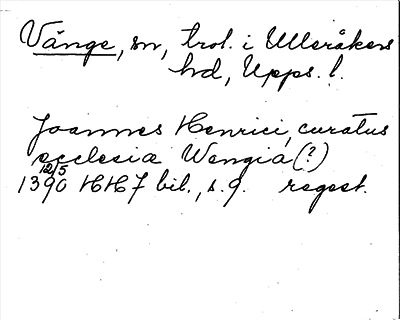 Vänge, sn, trol. i Ulleråkers
hd, Upps. l.
Joannes Henrici, curatus
ecclesia Wengia (?)
12/5
1390 HH 7 bil., s. 9. regest.